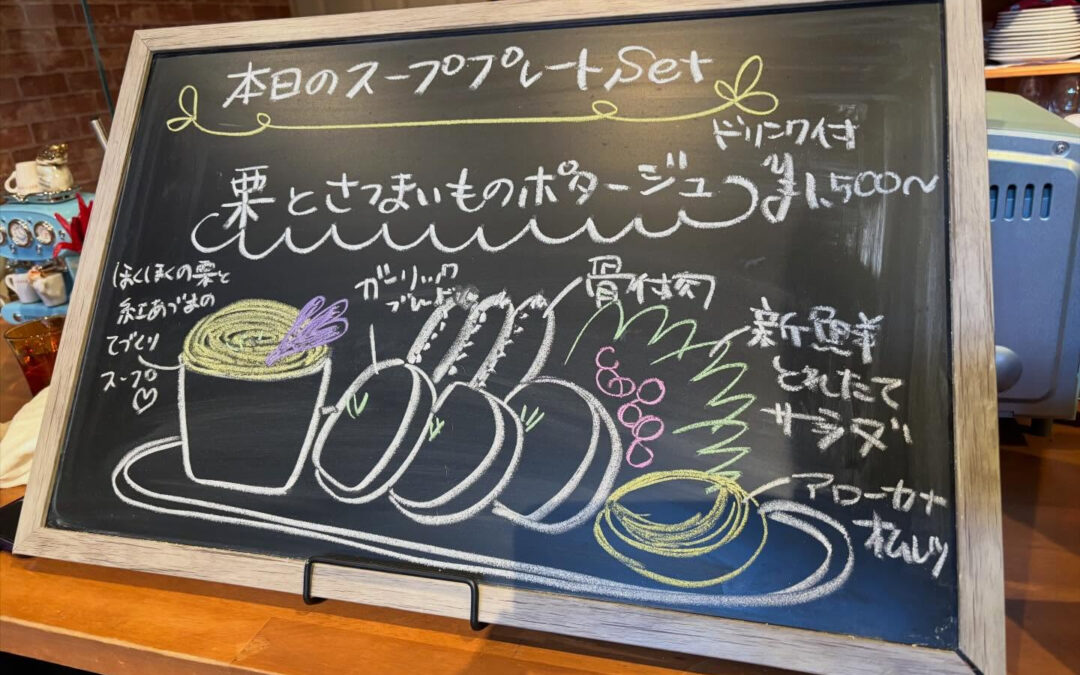 本日のスーププレートSet
ドリンク付
¥1,500〜
栗とさつまいものポタージュ
ほくほくの栗と
紅あづまの
てづくり
スープ♡
ガーリック
ブレッド
骨付肉
新鮮
とれたて
サラダ
アローカナ
オムレツ